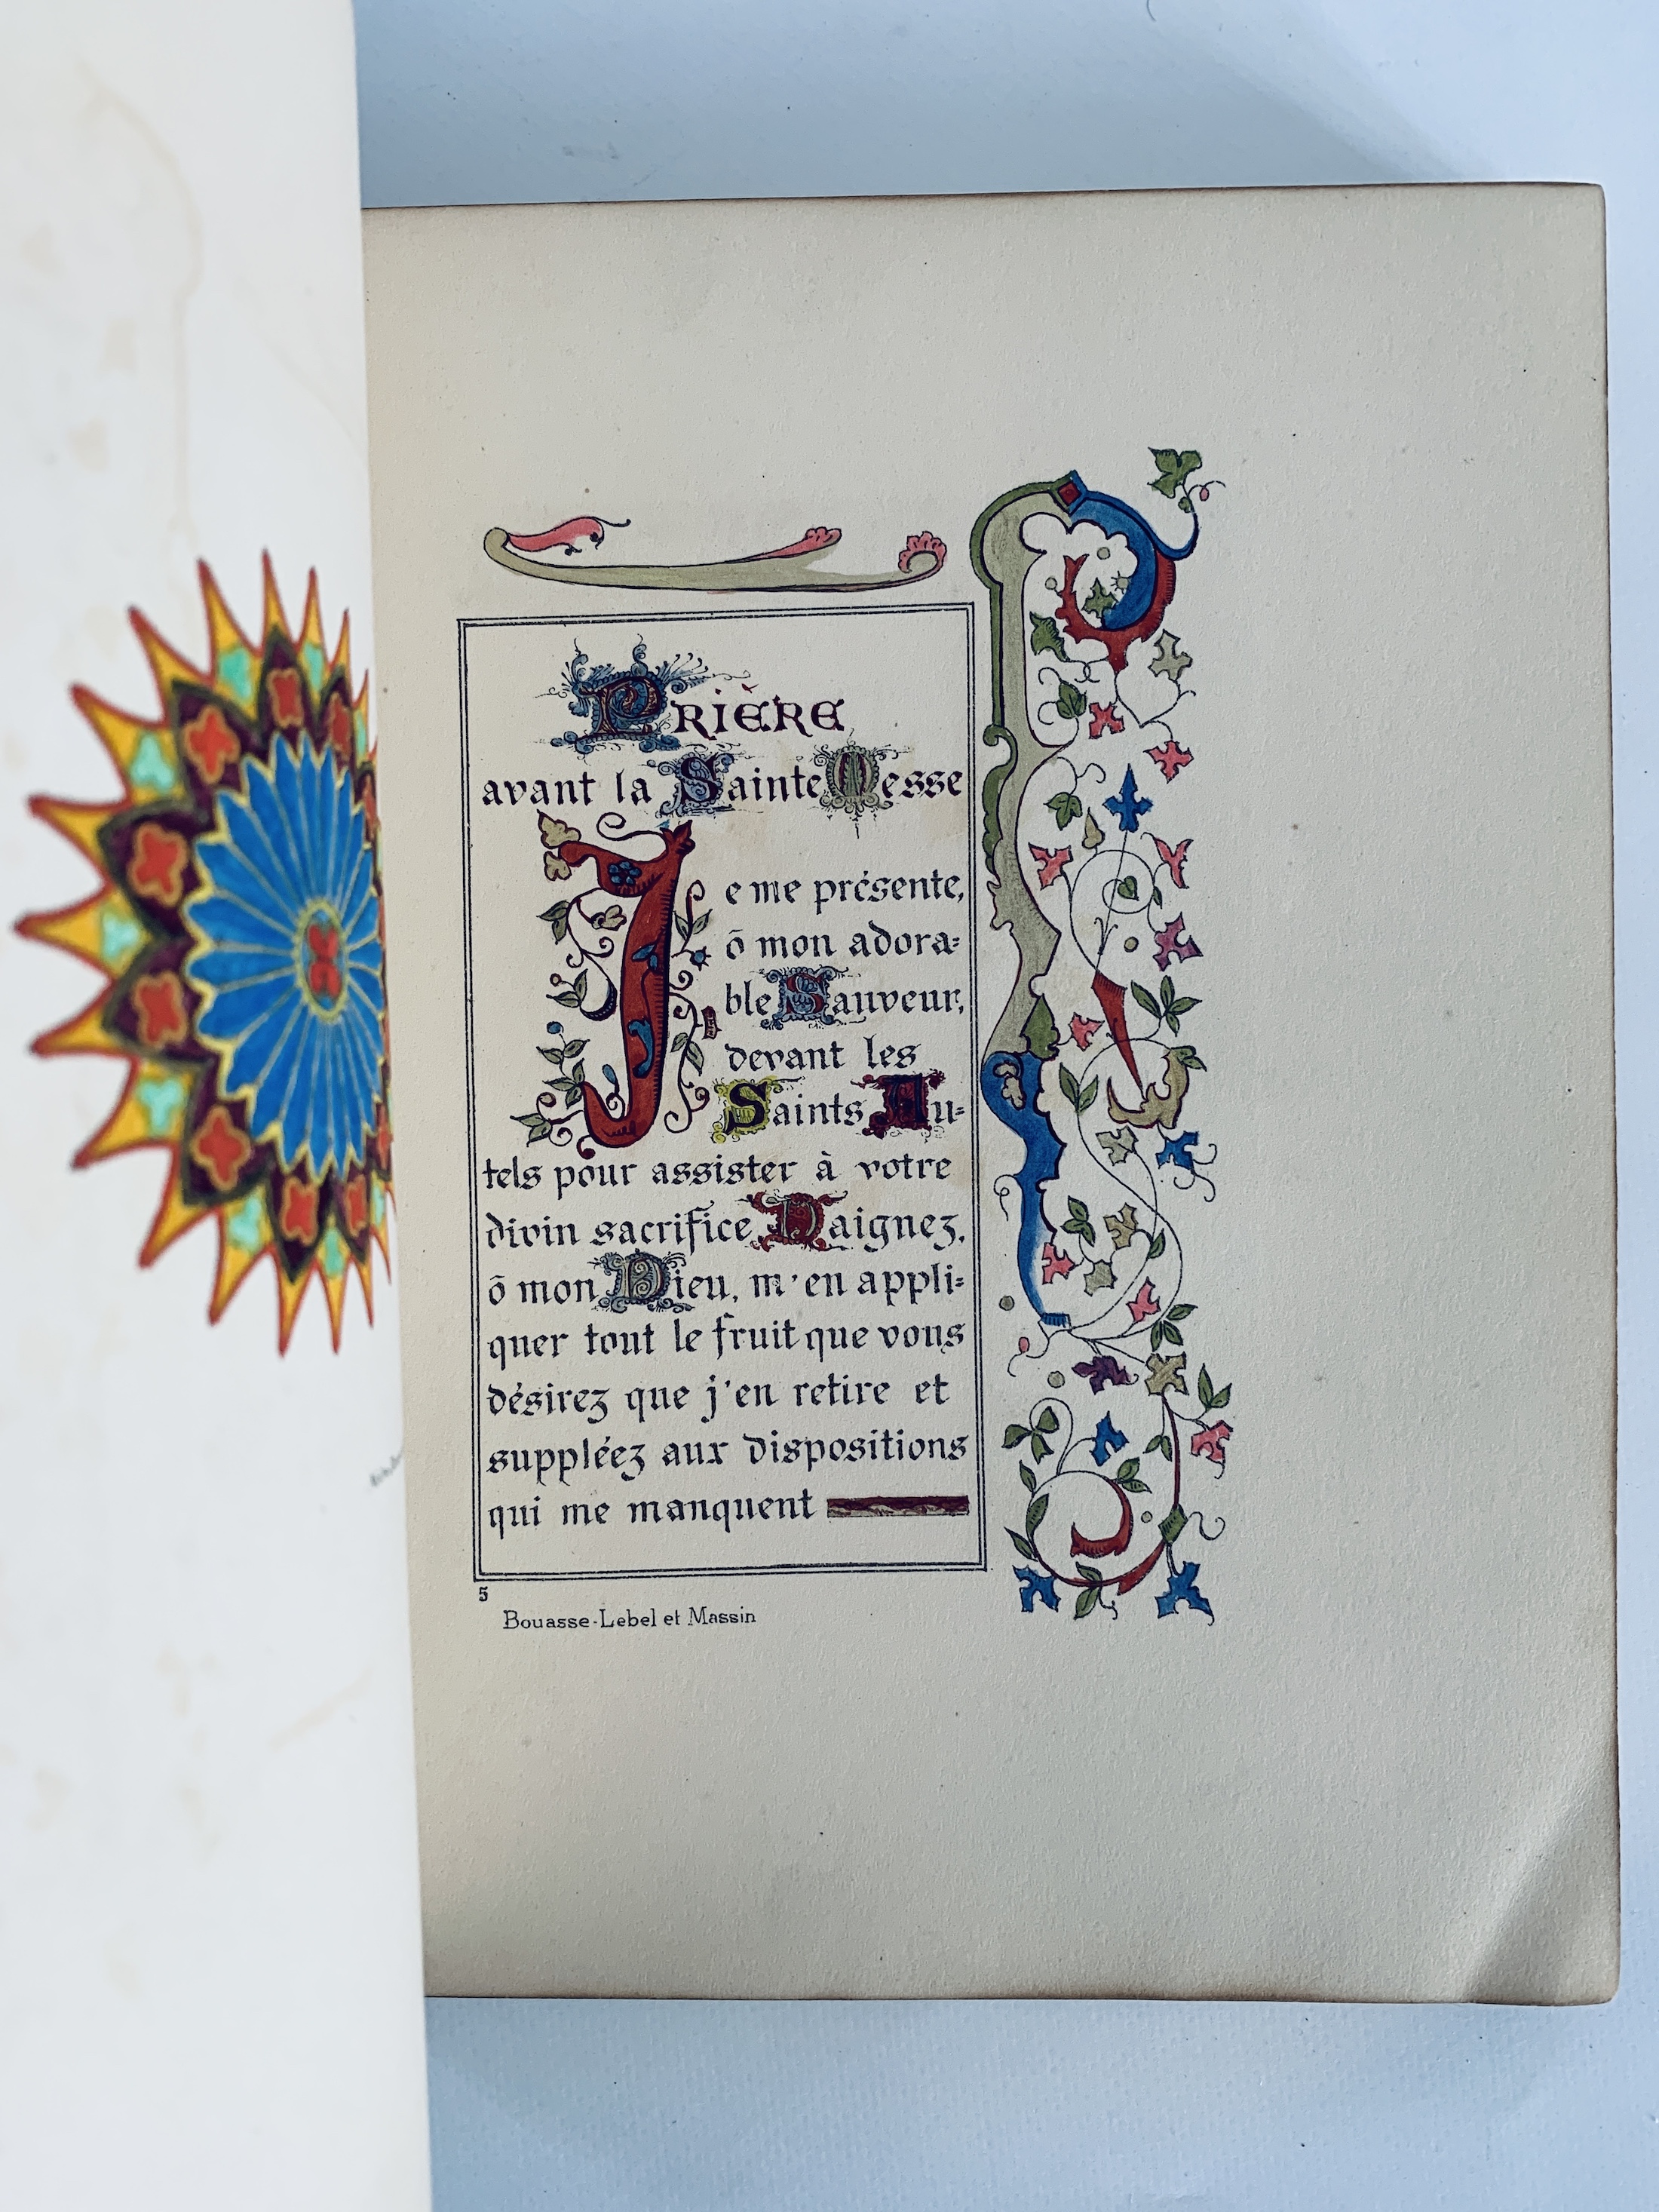 PRIÈRE
avant la Sainte Messe
Je me présente,
ô mon adora=
ble Sauveur,
devant les
Saints Au=
tels pour assister à votre
divin sacrifice Daignez,
ō mon Dieu, m'en appli=
quer tout le fruit que vous
désirez que j'en retire et
suppléez aux dispositions
qui me manquent
5
Bouasse-Lebel et Massin